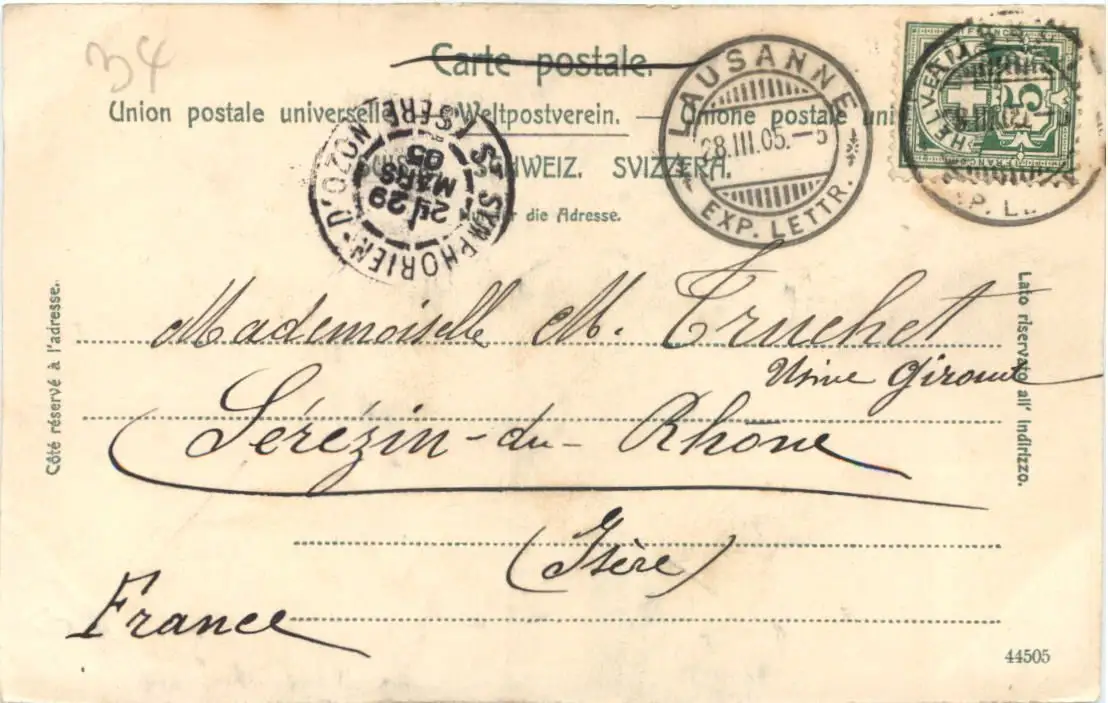 34
Carte postale.
Union postale universelle. — Weltpostverein. — Unione postale uni
SCHWEIZ. SVIZZERA.
die Adresse.
LAUSANNE
28.III.05.-5
EXP. LETTR.
HELVETIA
5
ST SYMPHORIEN-D'OZON
ISÈRE
29
MARS
05
Côté réservé à l'adresse.
Lato riservato all' indirizzo.
Mademoiselle M. Truchet
Usine Giroud
Sérézin-du-Rhône
(Isère)
France
44505